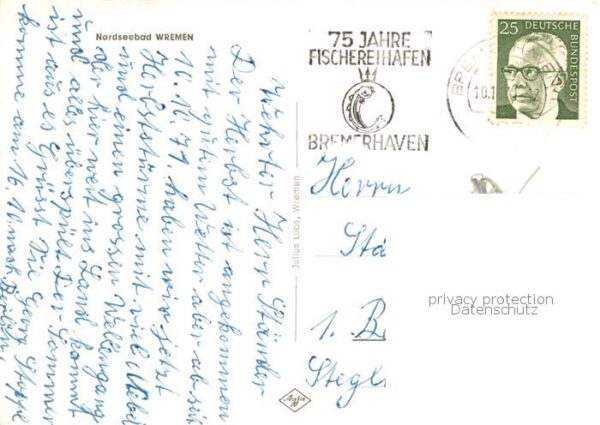 Nordseebad WREMEN
75 JAHRE
FISCHEREIHAFEN
BREMERHAVEN
25 DEUTSCHE
BUNDESPOST
Werter Herr Ständer
Der Herbst ist angekommen
mit gutem Wetter aber ab seit
16.10.71 haben wir jetzt
Herbststürme mit viel Nebel
und einen grossen Wellengang
der hier weit ins Land kommt
und alles überspült. Der Sommer
ist aus es Grüsst Sie Georg
komme am 16.10. nach Berlin,
Julius Lübs, Wremen
Herrn
Stä
1. B
Stegl
privacy protection
Datenschutz